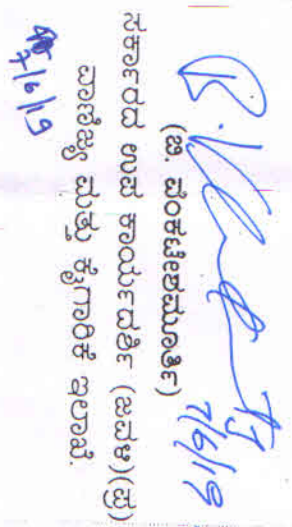 7/6/19
(ಬಿ. ವೆಂಕಟೇಶಮೂರ್ತಿ)
ಸರ್ಕಾರದ ಉಪ ಕಾರ್ಯದರ್ಶಿ (ಜವಳಿ)(ಪ್ರ)
ವಾಣಿಜ್ಯ ಮತ್ತು ಕೈಗಾರಿಕೆ ಇಲಾಖೆ.
7/6/19